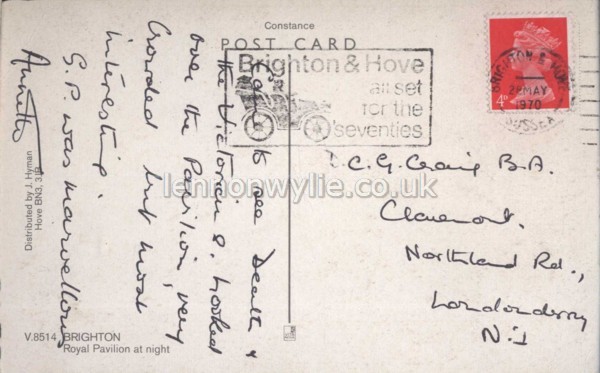 Constance
POST CARD
Brighton & Hove
all set
for the
seventies
BRIGHTON & HOVE
28 MAY
1970
SUSSEX
4D
to see Death &
the Victorian & looked
over the Pavilion, very
Crowded but most
interesting.
S.P. was marvellous
Annette
C. G. Craig B.A.
Claremont.
Northland Rd.,
Londonderry
N.I
lennonwylie.co.uk
Distributed by J. Hyman
Hove BN3, 3JB
V.8514 BRIGHTON
Royal Pavilion at night